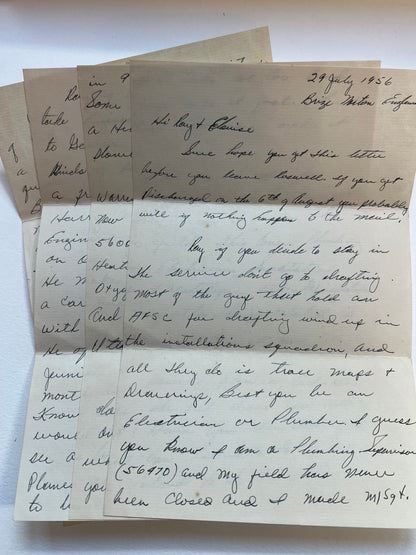 29 July 1956
Brize Norton England
Hi Ray & Clarise
Sure hope you get this letter
before you leave Roswell. If you get
Discharged on the 6th of August you probably
will if nothing happen to the mail.
Ray if you decide to stay in
the service don't go to drafting.
Most of the guys that hold an
AFSC for drafting wind up in
the installations squadron, And
all they do is trace maps &
Drawerings, Best you be an
Electrician or Plumber. I guess
you know I am a Plumbing Supervisor
(56470) and my field has never
been Closed And I made M/Sgt.
in 9
Some
a He
Warren
Now
5606
Heat
Oxyg
And
you
take
to
a
Harr
Engin
on
He m
a car
With
He
mont
Know
would
see a
Planes
to
of
a